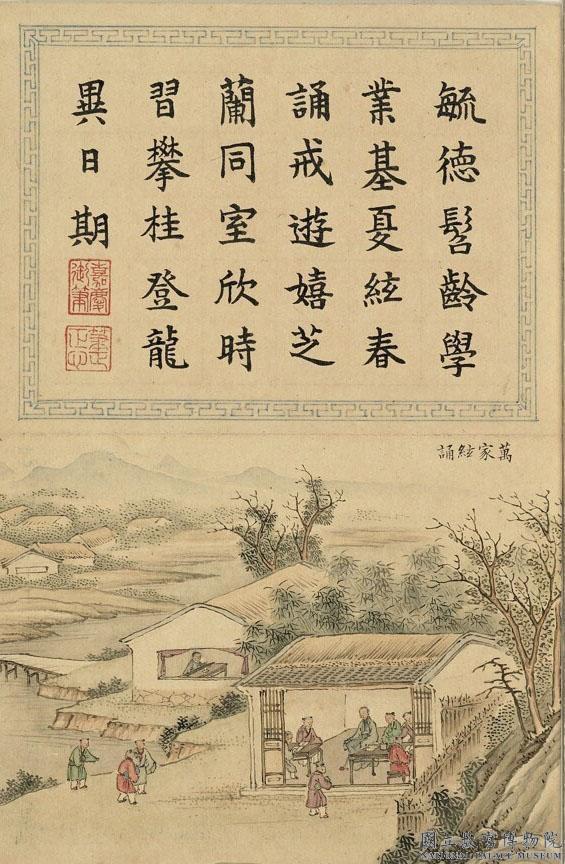 毓德髫齡學
業基夏絃春
誦戒遊嬉芝
蘭同室欣時
習攀桂登龍
異日期
嘉慶
御筆
萬家絃誦
國立故宮博物院
NATIONAL PALACE MUSEUM